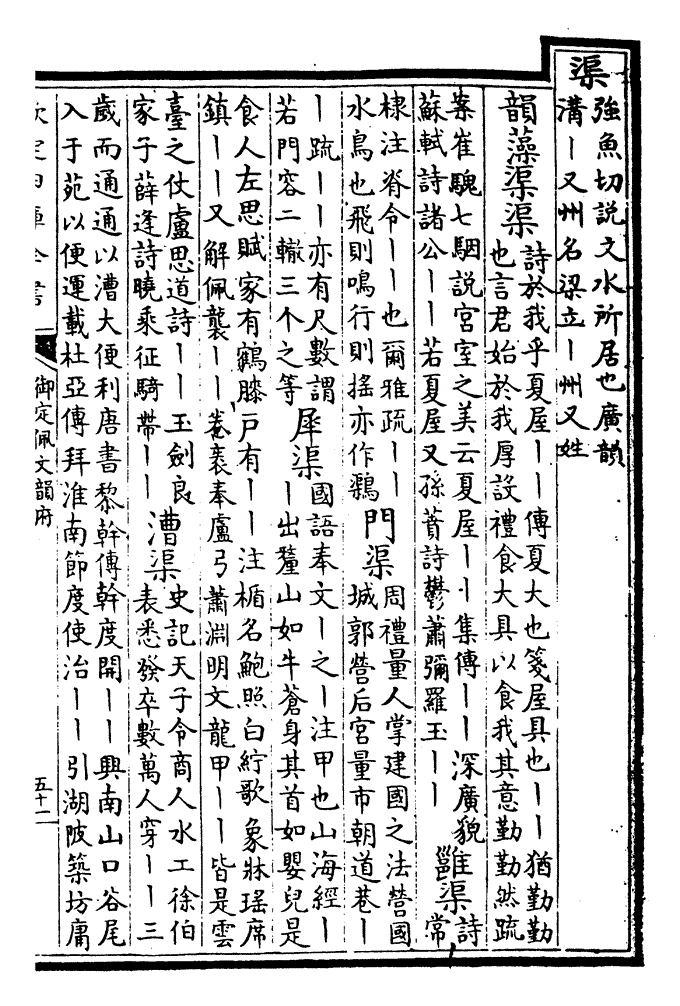 渠
強魚切說文水所居也廣韻
溝丨又州名梁立丨州又姓
韻藻渠渠
詩於我乎夏屋丨丨傳夏大也箋屋具也丨丨猶勤勤
也言君始於我厚設禮食大具以食我其意勤勤然疏
案崔騩七駰說宮室之美云夏屋丨丨集傳丨丨深廣貌
蘇軾詩諸公丨丨若夏屋又孫蕡詩鬱蕭彌羅玉丨丨
雝渠
詩
常
棣注脊令丨丨也爾雅疏丨丨
水鳥也飛則鳴行則搖亦作鶏
門渠
周禮量人掌建國之法營國
城郭營后宮量市朝道巷丨
丨疏丨丨亦有尺數謂
若門容二轍三个之等
犀渠
國語奉文丨之丨注甲也山海經丨
丨出釐山如牛蒼身其首如嬰兒是
食人左思賦家有鶴膝户有丨丨注楯名鮑照白紵歌象牀瑤席
鎮丨丨又解佩襲丨丨卷袠奉盧弓蕭淵明文龍甲丨丨皆是雲
臺之仗盧思道詩丨丨玉劍良
家子薛逢詩曉乘征騎帶丨丨
漕渠
史記天子令商人水工徐伯
表悉發卒數萬人穿丨丨三
歲而通通以漕大便利唐書黎幹傳幹度開丨丨興南山口谷尾
入于苑以便運載杜亞傳拜淮南節度使治丨丨引湖陂築坊庸
欽定四庫全書
御定佩文韻府
五十二